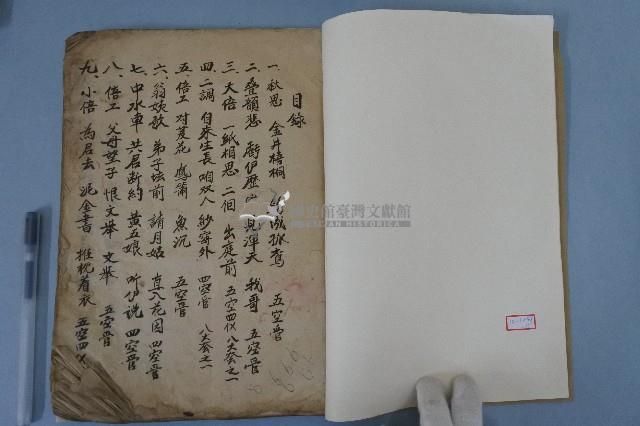 目錄
一、秋思 金井梧桐 五空管
二、疊韻悲 我哥 五空管
三、大倍 一紙相思 二個 出庭前 五空四仪 八大套之一
四、二調 自來生長 咱双人 紗窗外 四空管 八大套之一
五、倍工 对菱花 鴈簫 魚沉 五空管
六、翁姨歌 弟子坛前 請月姑 直入花园 四空管
七、中水車 共君断約 黃五娘 听伊说 四空管
八、倍工 父母望子 恨文举 文举 五空管
九、小倍 為君去 泥金書 推枕着衣 五空四仪
國史館臺灣文獻館
TAIWAN HISTORICA